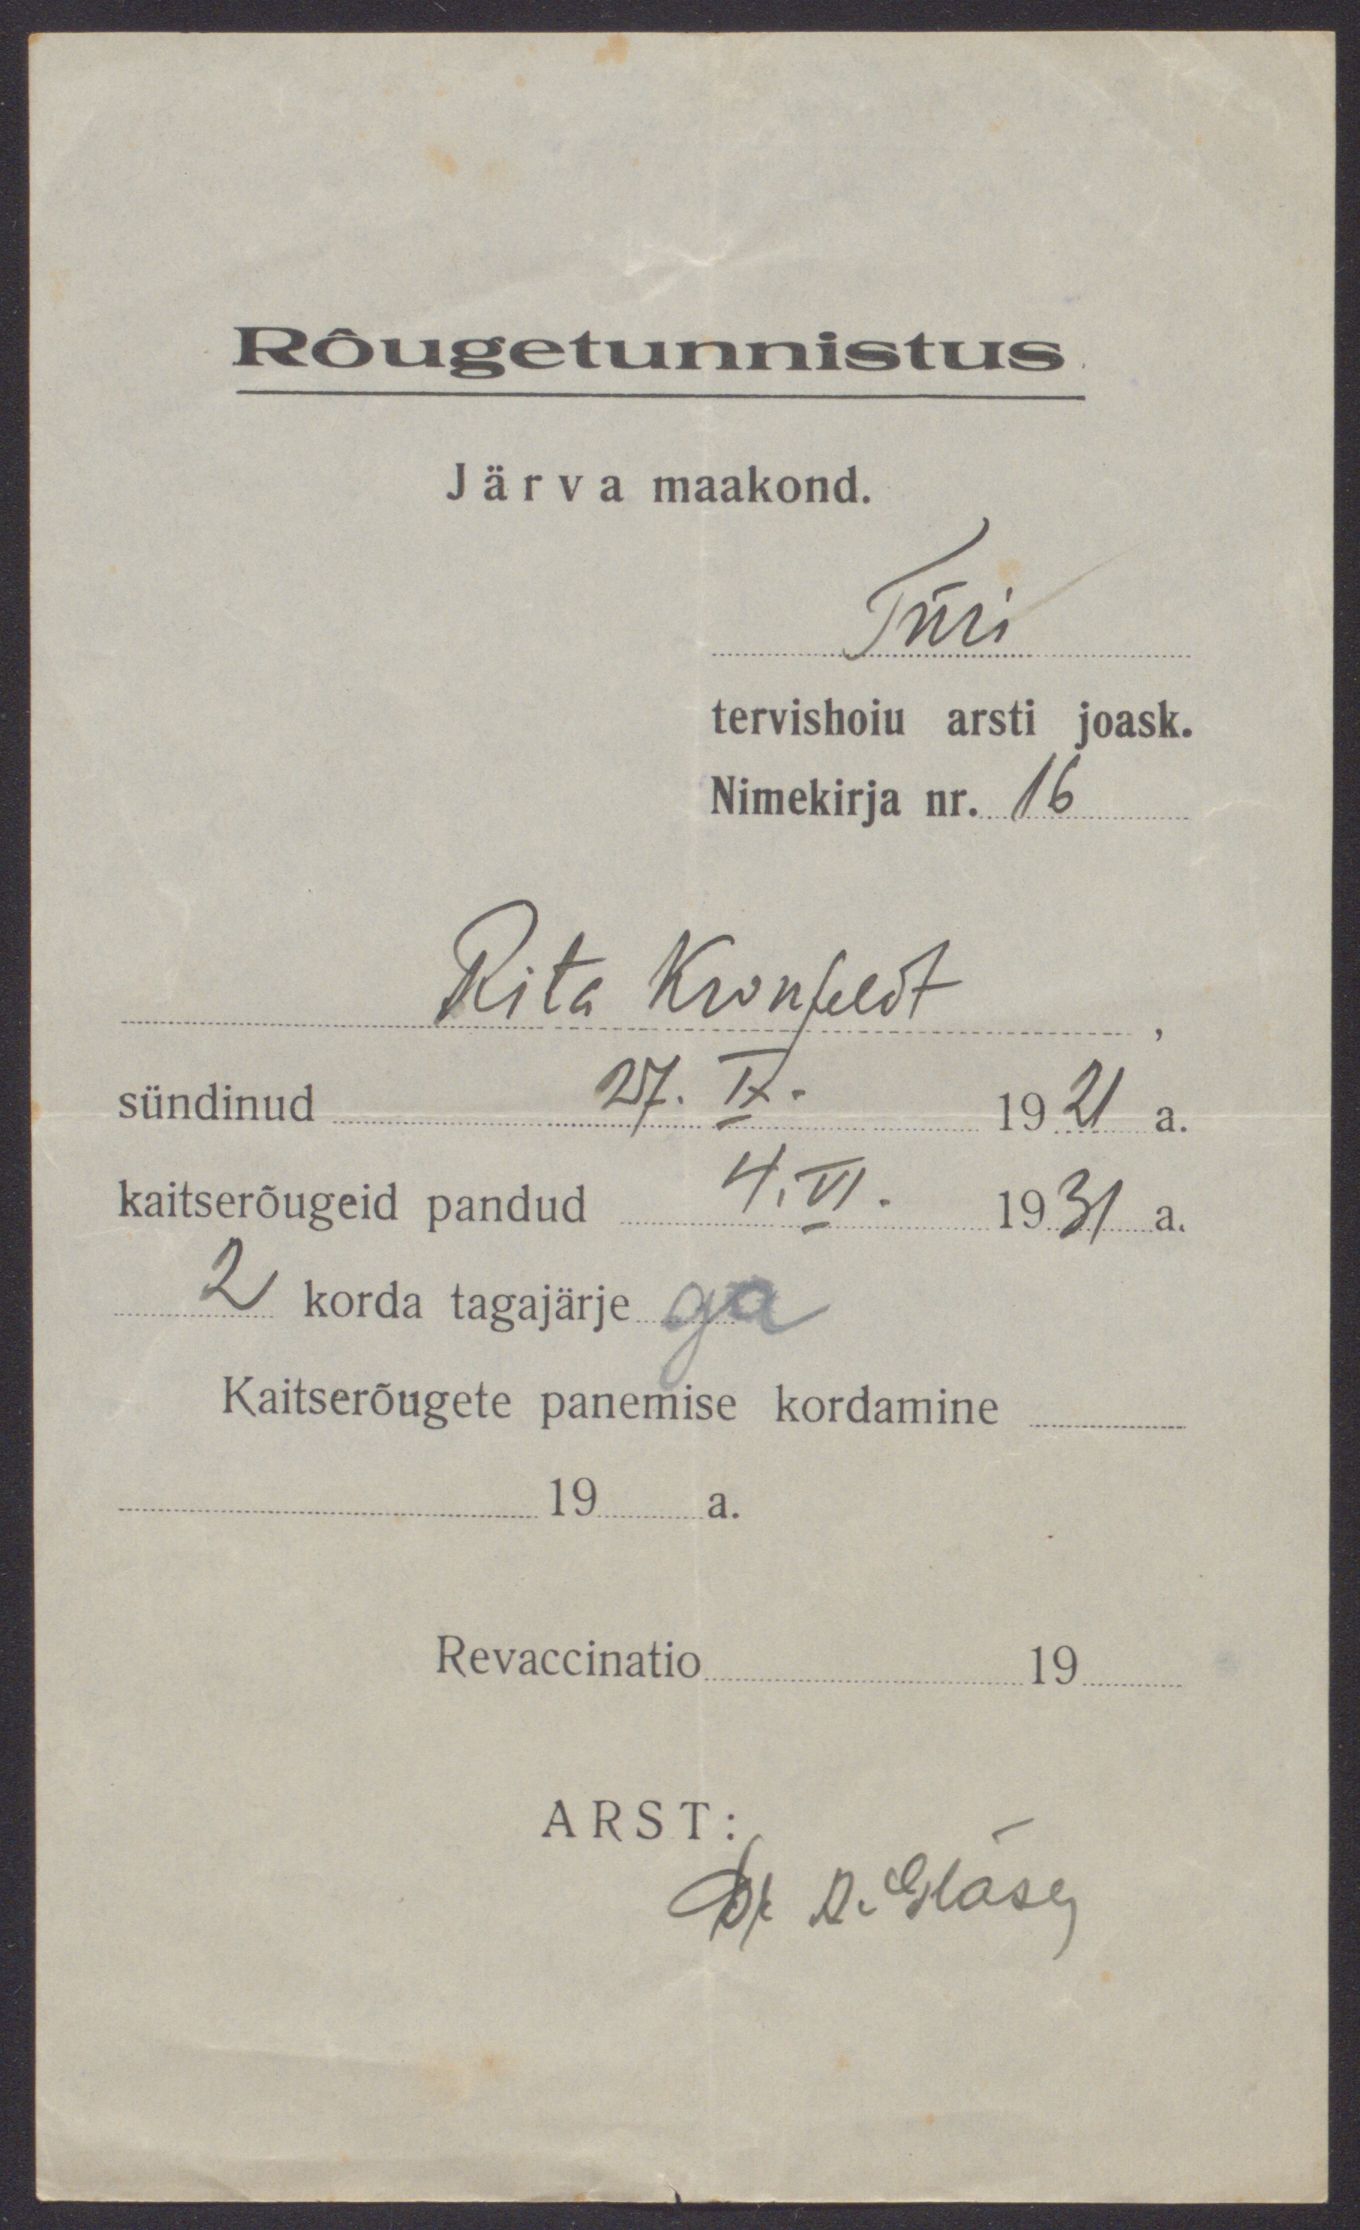 Rôugetunnistus
Järva maakond.
Türi
tervishoiu arsti joask.
Nimekirja nr. 16
Rita Kronfeldt,
sündinud 27. IX. 1921 a.
kaitserõugeid pandud 4. VI. 1931 a.
2 korda tagajärjega
Kaitserõugete panemise kordamine
19 a.
Revaccinatio 19
ARST:
Dr A. Gläser